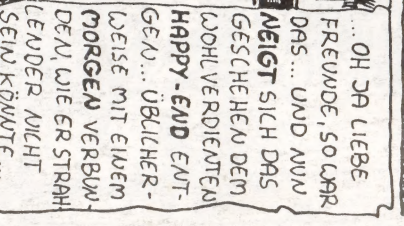 ...OH JA LIEBE
FREUNDE, SO WAR
DAS... UND NUN
NEIGT SICH DAS
GESCHEHEN DEM
WOHLVERDIENTEN
HAPPY-END ENT-
GEGEN... ÜBLICHER-
WEISE MIT EINEM
MORGEN VERBUN-
DEN, WIE ER STRAH
LENDER NICHT
SEIN KÖNNTE...